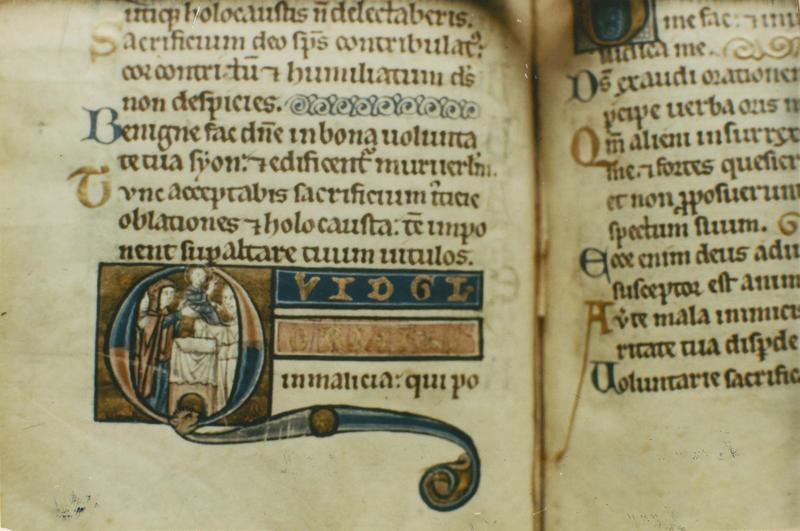 utiq; holocaustis ñ delectaberis.
Sacrificium deo sp̄s contribulat;
cor contritū ⁊ humiliatum d̄s
non despicies.
Benigne fac dn̄e in bona uolunta
te tua syon: ⁊ edificent̃ muri ierl̄m.
Tvnc acceptabis sacrificium iticie
oblationes ⁊ holocausta: tc̄ impo
nent sup altare tuum uitulos.
QVID GL
ORIARIS
in malicia: qui po
me fac: ⁊ in ui
iudica me.
Ds̄ exaudi orationem
pcipe uerba oris m
Qm̄ alieni insurrex
me. ⁊ fortes quesier
et non pposuerunt
spectum suum.
Ecce enim deus adiu
susceptor est anim
Avte mala inimicis
ritate tua dispde
Uoluntarie sacrific